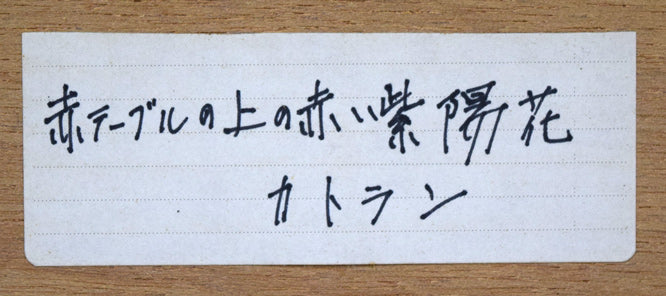 赤テーブルの上の赤い紫陽花
カトラン